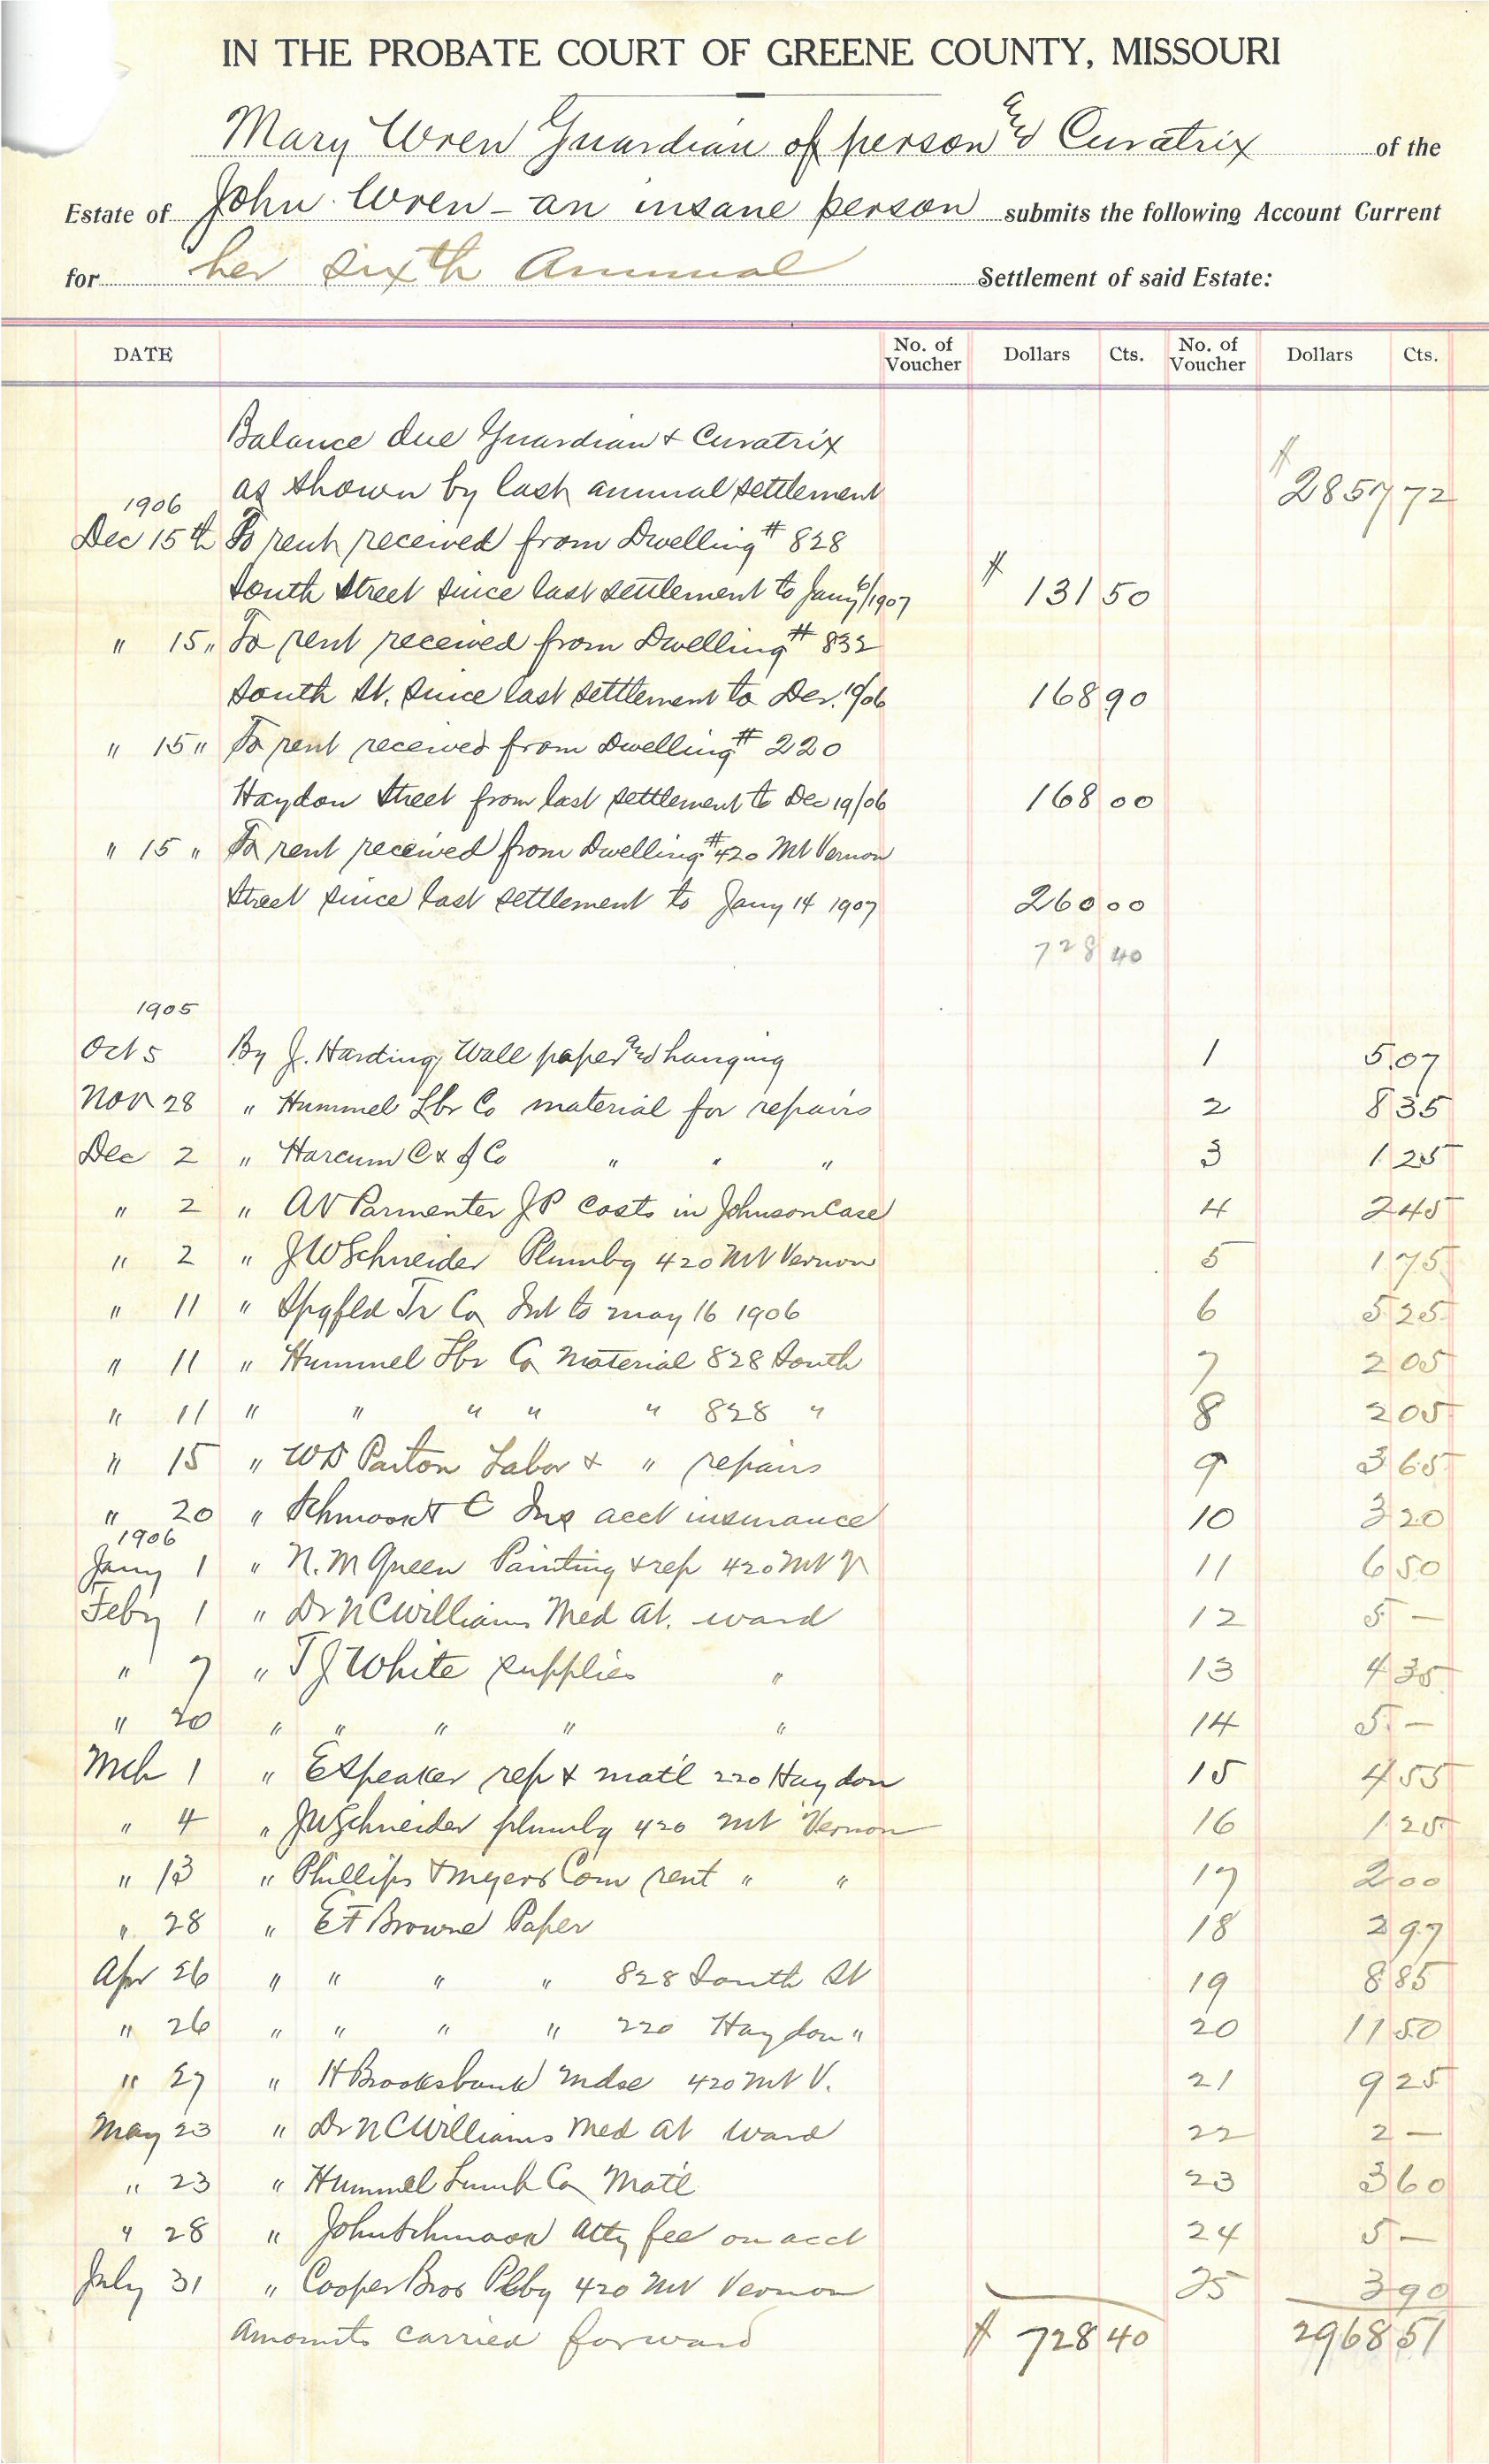 IN THE PROBATE COURT OF GREENE COUNTY, MISSOURI
Mary Wren Guardian of person and Curatrix of the
Estate of John Wren - an insane person submits the following Account Current
for her sixth Annual Settlement of said Estate:
DATE No. of Voucher Dollars Cts. No. of Voucher Dollars Cts.
Balance due Guardian & Curatrix
as shown by last annual settlement $ 2857 72
1906
Dec 15th To rent received from Dwelling # 828
South Street since last settlement to Jany 6/1907 $ 131 50
" 15 " To rent received from Dwelling # 832
South St. since last settlement to Dec. 10/06 168 90
" 15 " To rent received from Dwelling # 220
Haydon Street from last settlement to Dec 19/06 168 00
" 15 " To rent received from Dwelling # 420 Mt Vernon
Street since last settlement to Jany 14 1907 260 00
728 40
1905
Oct 5 By J. Harding Wall paper and hanging 1 5.07
Nov 28 " Hummel Lbr Co material for repairs 2 8 35
Dec 2 " Harcum C & J Co " " " 3 1 25
" 2 " AV Parmenter JP Costs in Johnson Case 4 2 45
" 2 " JW Schneider Plumbg 420 Mt Vernon 5 1 75
" 11 " Spgfld Tr Co Int to may 16 1906 6 5 25
" 11 " Hummel Lbr Co Material 828 South 7 2 05
" 11 " " " " " 828 " 8 2 05
" 15 " WD Paxton Labor & " repairs 9 3 65
" 20 " C Ins acct insurance 10 3 20
1906
Jany 1 " N. M Green Painting & rep 420 Mt V 11 6 50
Feby 1 " Dr NC Williams Med At. ward 12 5 —
" 7 " T J White supplies " 13 4 35
" 20 " " " " " 14 5. —
Mch 1 " E Speaker rep & mat'l 220 Haydon 15 4 55
" 4 " JW Schneider plumbg 420 Mt Vernon 16 1 25
" 13 " Phillips & Myers Com rent " " 17 2 00
" 28 " E F Browne Paper 18 2 97
Apr 26 " " " " 828 South St 19 8 85
" 26 " " " " 220 Haydon " 20 11 50
" 27 " H Brooksbank Mdse 420 Mt V. 21 9 25
May 23 " Dr NC Williams Med At Ward 22 2 —
" 23 " Hummel Lumb Co Mat'l 23 3 60
" 28 " John Schmook Atty fee on acct 24 5 —
July 31 " Cooper Bros Plbg 420 Mt Vernon 25 3 90
Amounts carried forward $ 728 40 2968 51